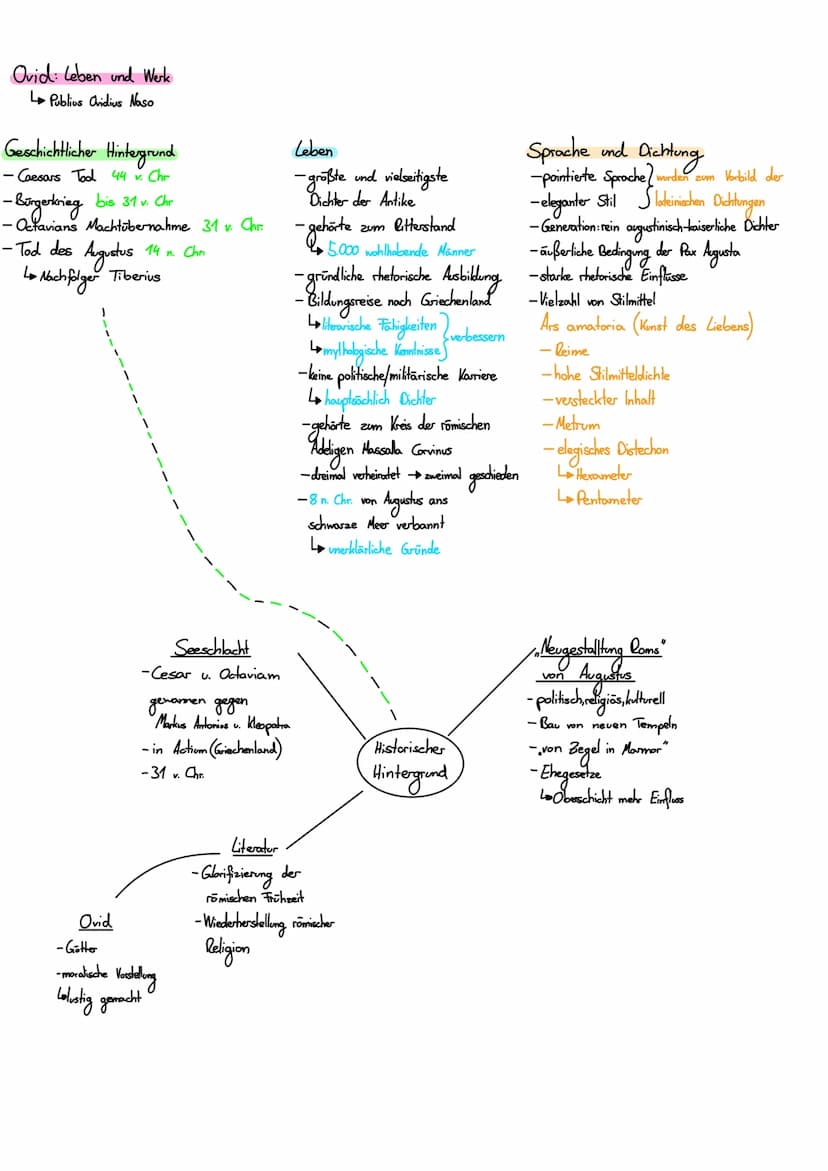 Ovid: Leben und Werk
↳ Publius Ovidius Naso
Geschichtlicher Hintergrund
- Caesars Tod 44 v. Chr
- Bürgerkrieg bis 31 v. Chr
- Octavians Machtübernahme 31 v. Chr.
- Tod des Augustus 14 n. Chr.
↳ Nachfolger Tiberius
Leben
- größte und vielseitigste
Dichter der Antike
- gehörte zum Ritterstand
↳ 5.000 wohlhabende Männer
- gründliche rhetorische Ausbildung
- Bildungsreise nach Griechenland
↳ literarische Fähigkeiten
↳ mythologische Kenntnisse } verbessern
- keine politische/militärische Karriere
↳ hauptsächlich Dichter
- gehörte zum Kreis der römischen
Adeligen Massalla Corvinus
- dreimal verheiratet → zweimal geschieden
- 8 n. Chr. von Augustus ans
schwarze Meer verbannt
↳ unerklärliche Gründe
Sprache und Dichtung
- pointierte Sprache } wurden zum Vorbild der
- eleganter Stil } lateinischen Dichtungen
- Generation: rein augustinisch-kaiserliche Dichter
- äußerliche Bedingung der Pax Augusta
- starke rhetorische Einflüsse
- Vielzahl von Stilmittel
Ars amatoria (Kunst des Liebens)
- Reime
- hohe Stilmitteldichte
- versteckter Inhalt
- Metrum
- elegisches Distechon
↳ Hexameter
↳ Pentameter
Seeschlacht
- Cesar u. Octaviam
gewannen gegen
Markus Antonius u. Kleopatra
- in Actium (Griechenland)
- 31 v. Chr.
Historischer
Hintergrund
„Neugestalltung Roms"
von Augustus
- politisch, religiös, kulturell
- Bau von neuen Tempeln
- „von Zegel in Marmor"
- Ehegesetze
↳ Oberschicht mehr Einfluss
Literatur
- Glorifizierung der
römischen Frühzeit
- Wiederherstellung römischer
Religion
Ovid
- Götter
- moralische Vorstellung
↳ lustig gemacht